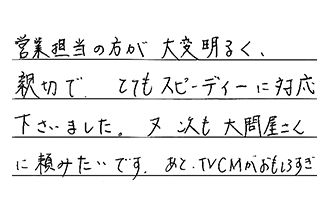 営業担当の方が 大変明るく、
親切で、とてもスピーディーに対応
下さいました。又 次も 大問屋さん
に頼みたいです。あと、TVCMがおもしろすぎ